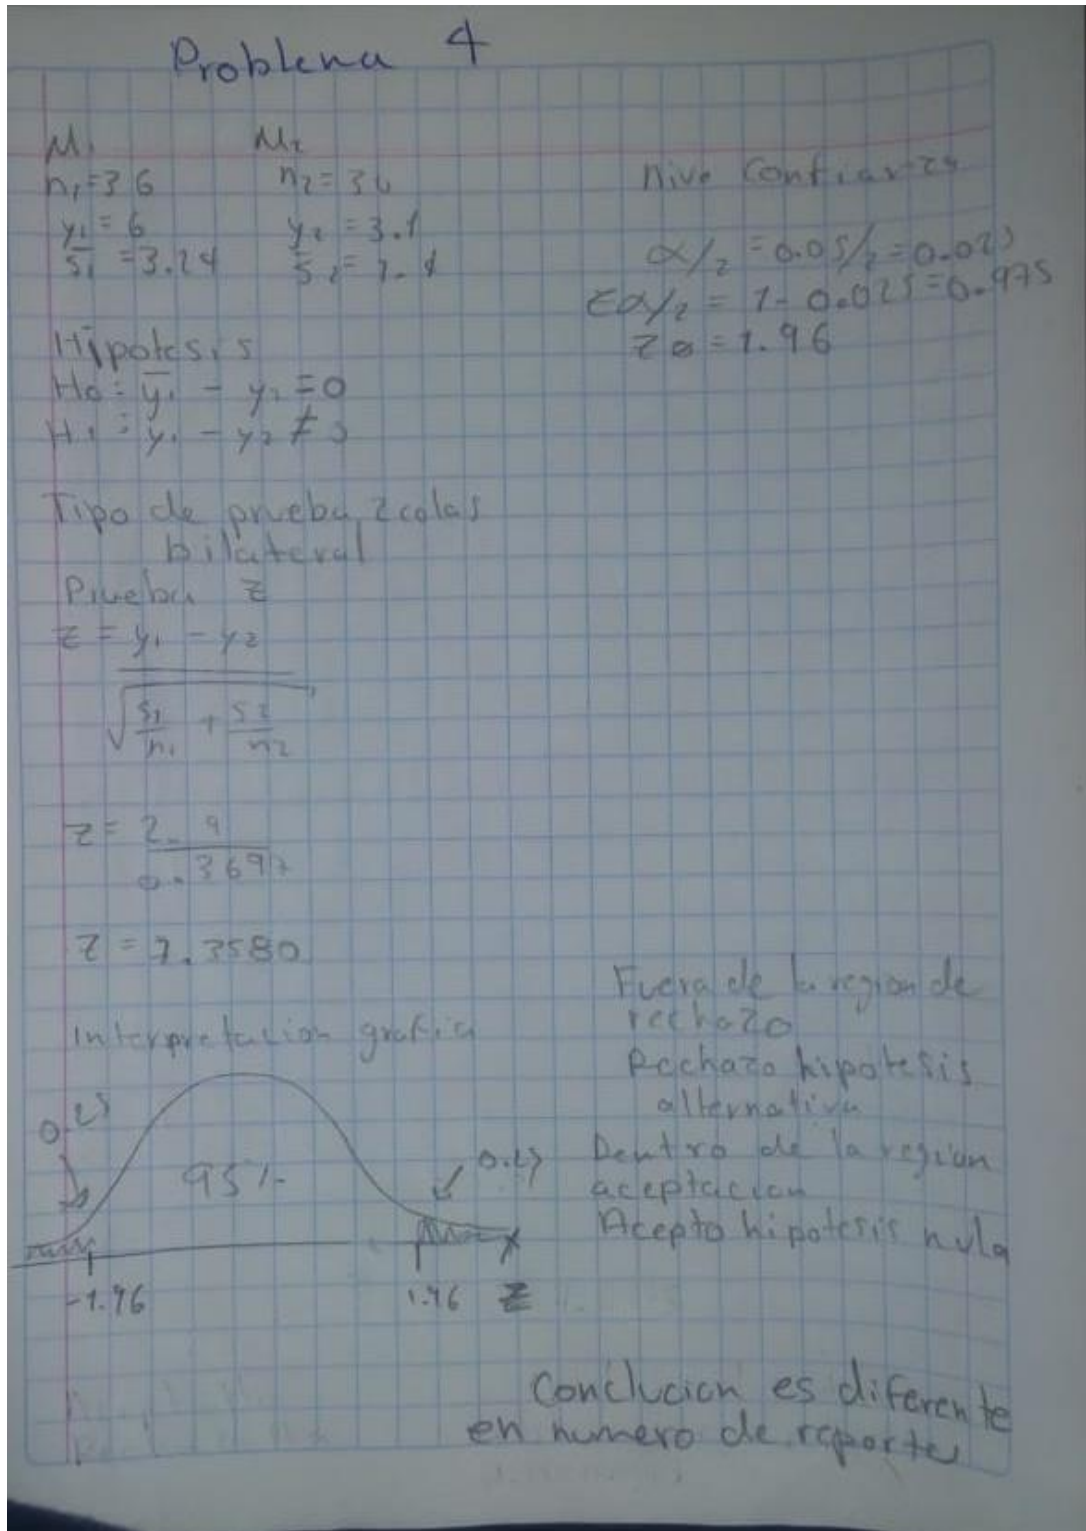 Problema 4
M1 M2
n1=36 n2=36
y1 = 6 y2 = 3.1
S1 = 3.24 S2 = 1.
nive confianza
α/2 = 0.05/2 = 0.025
Zα/2 = 1 - 0.025 = 0.975
Zα = 1.96
Hipotesis
Ho: y1 - y2 = 0
H1: y1 - y2 ≠ 0
Tipo de prueba 2 colas
bilateral
Prueba Z
Z = y1 - y2
√ S1/n1 + S2/n2
Z = 2.9
0.3697
Z = 7.3580
Interpretacion grafica
Fuera de la region de
rechazo
Rechazo hipotesis
alternativa
Dentro de la region
aceptacion
Acepto hipotesis nula
95%
-1.96 1.96 Z
Conclucion es diferente
en numero de reporte